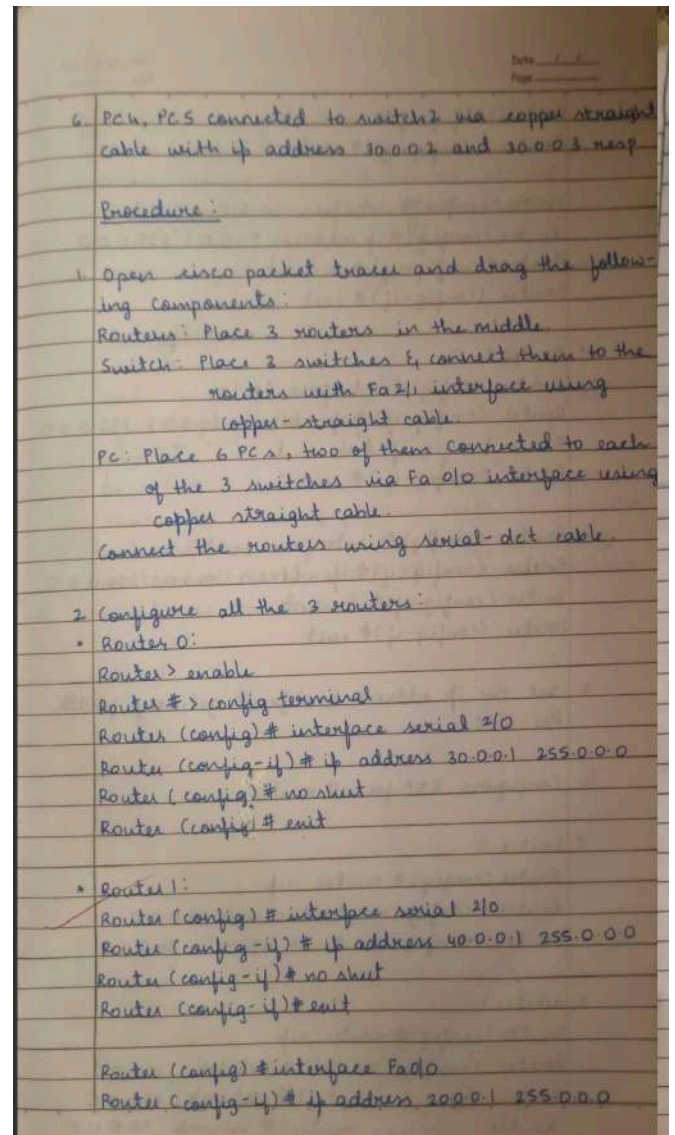 Date
Page
6. PC4, PC5 connected to switch2 via copper straight
cable with ip address 30.0.0.2 and 30.0.0.3 resp
Procedure:
1. Open cisco packet tracer and drag the follow-
ing components:
Routers: Place 3 routers in the middle.
Switch: Place 3 switches & connect them to the
routers with Fa2/1 interface using
copper-straight cable.
PC: Place 6 PCs, two of them connected to each
of the 3 switches via Fa 0/0 interface using
copper straight cable.
Connect the routers using serial-dct cable.
2 Configure all the 3 routers:
• Router 0:
Router> enable
Router #> config terminal
Router (config)# interface serial 2/0
Router (config-if)# ip address 30.0.0.1 255.0.0.0
Router (config)# no shut
Router (config)# exit
• Router 1:
Router (config) # interface serial 2/0
Router (config-if) # ip address 40.0.0.1 255.0.0.0
Router (config-if)# no shut
Router (config-if)# exit
Router (config) # interface Fa0/0
Router (config-if)# ip address 20.0.0.1 255.0.0.0